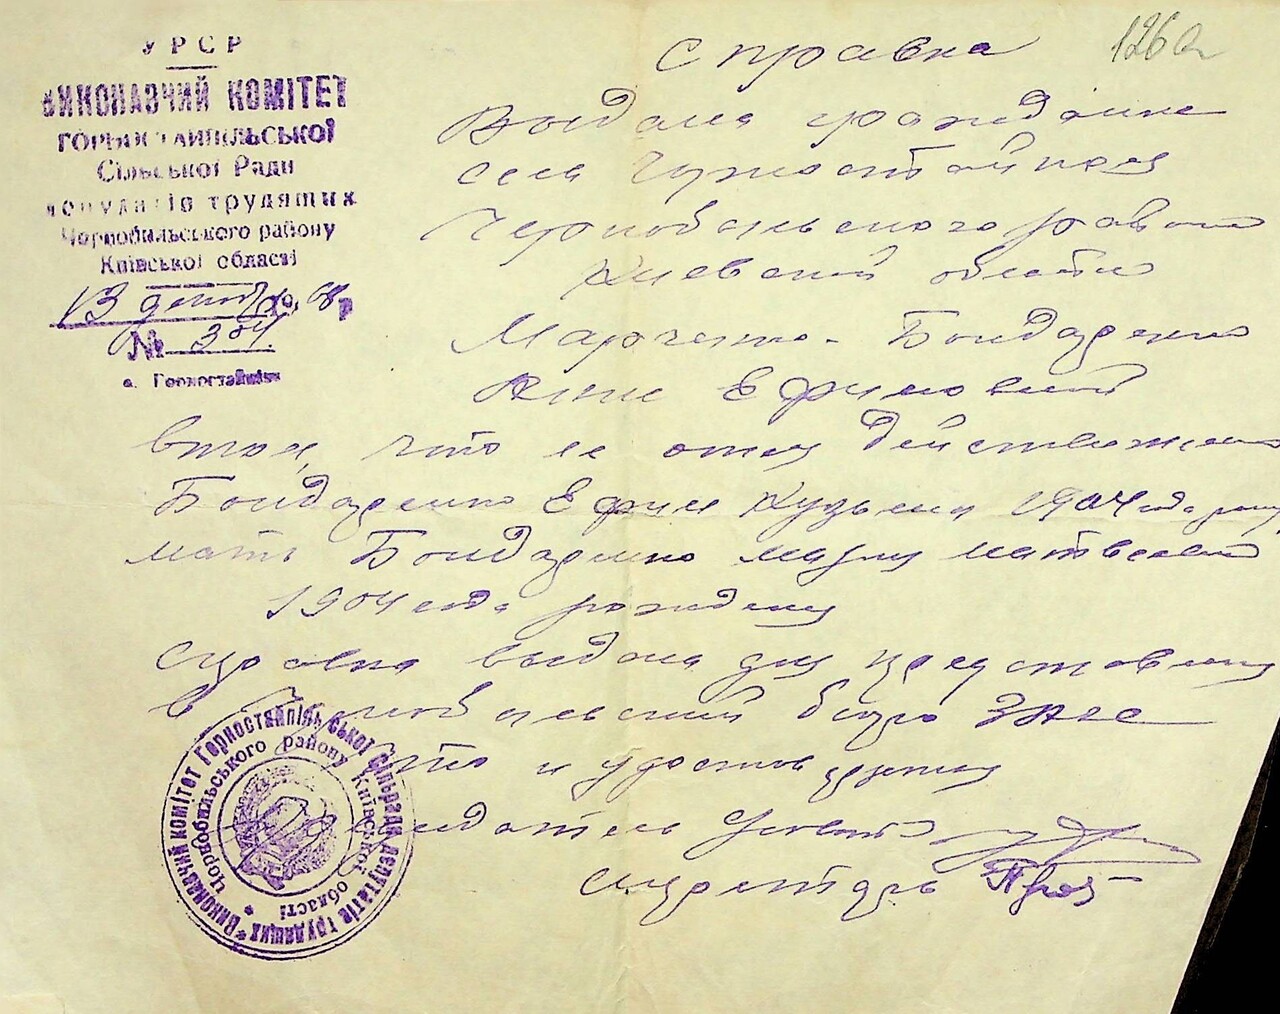 УРСР
ВИКОНАВЧИЙ КОМІТЕТ
ГОРНОСТАЙПІЛЬСЬКОЇ
Сільської Ради
депутатів трудящих
Чорнобильського району
Київської області
13
№ 304
с. Горностайпіль
126
Справка
Выдана гражданке
села Горностайполя
Чернобыльского района
Киевской области
Марченко-Бондаренко
Анне Ефимовной
в том, что ее отец действительно
Бондаренко Ефим Кузьмич 1904 года рожд
мать Бондаренко Мария Матвеевна
1904 года рождения
Справка выдана для представления
в Чернобыльский бюро ЗАГС
что и удостоверяем
Председатель Совета
Секретарь
Виконавчий комітет Горностайпільської сільради депутатів трудящих
Чорнобильського району Київської області